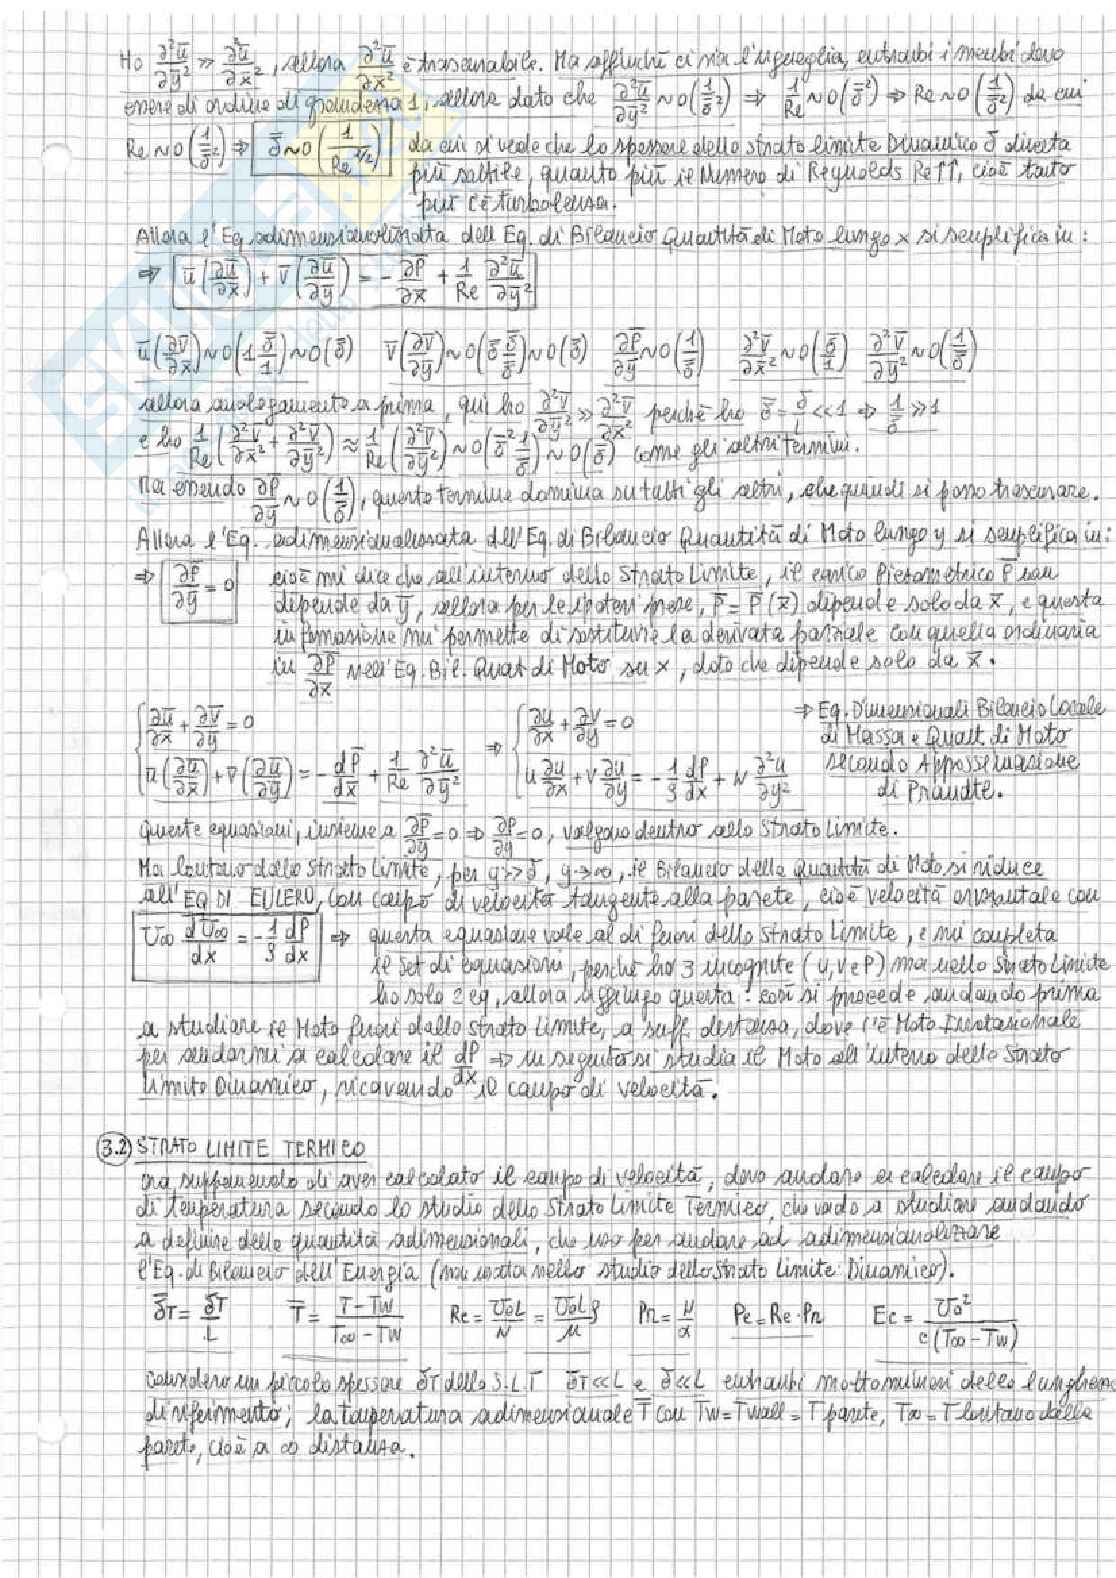 Ho ∂²ū/∂ȳ² >> ∂²ū/∂x̄², allora ∂²ū/∂x̄² è trascurabile. Ma affinché ci sia l'uguaglia, entrambi i membri devo
essere di ordine di grandezza 1, allora dato che ∂²ū/∂ȳ² ~ O(1/δ̄²) ⇒ 1/Re ~ O(δ̄²) ⇒ Re ~ O(1/δ̄²) da cui
Re ~ O(1/δ̄²) ⇒ δ̄ ~ O(1/Re^1/2) da cui si vede che lo spessore dello strato limite Dinamico δ̄ diventa
più sottile, quanto più il Numero di Reynolds Re↑↑, cioè tanto
più c'è turbolenza.
Allora l'Eq. adimensionalizzata dell'Eq. di Bilancio Quantità di Moto lungo x si semplifica in:
⇒ ū(∂ū/∂x̄) + v̄(∂ū/∂ȳ) = -∂P̄/∂x̄ + 1/Re ∂²ū/∂ȳ²
ū(∂v̄/∂x̄) ~ O(1 δ̄/1) ~ O(δ̄) v̄(∂v̄/∂ȳ) ~ O(δ̄ δ̄/δ̄) ~ O(δ̄) ∂P̄/∂ȳ ~ O(1/δ̄) ∂²v̄/∂x̄² ~ O(δ̄/1) ∂²v̄/∂ȳ² ~ O(1/δ̄)
allora analogamente a prima, qui ho ∂²v̄/∂ȳ² >> ∂²v̄/∂x̄² perché ho δ̄ = δ/L << 1 ⇒ 1/δ̄ >> 1
e ho 1/Re(∂²v̄/∂x̄² + ∂²v̄/∂ȳ²) ≈ 1/Re(∂²v̄/∂ȳ²) ~ O(δ̄² 1/δ̄) ~ O(δ̄) come gli altri termini.
Ma essendo ∂P̄/∂ȳ ~ O(1/δ̄), questo termine domina su tutti gli altri, che quindi si posso trascurare.
Allora l'Eq. adimensionalizzata dell'Eq. di Bilancio Quantità di Moto lungo y si semplifica in:
⇒ ∂P̄/∂ȳ = 0 cioè mi dice che all'interno dello Strato Limite, il carico Piezometrico P̄ non
dipende da ȳ, allora per le ipotesi prese, P̄ = P̄(x̄) dipende solo da x̄, e questa
informazione mi permette di sostituire la derivata parziale con quella ordinaria
in ∂P̄/∂x̄ nell'Eq. Bil. Quat di Moto su x, dato che dipende solo da x̄.
{ ∂ū/∂x̄ + ∂v̄/∂ȳ = 0 ⇒ { ∂u/∂x + ∂v/∂y = 0 ⇒ Eq. Dimensionali Bilancio Locale
di Massa e Quatt. di Moto
ū(∂ū/∂x̄) + v̄(∂ū/∂ȳ) = -dP̄/dx̄ + 1/Re ∂²ū/∂ȳ² u ∂u/∂x + v ∂u/∂y = -1/ρ dP/dx + ν ∂²u/∂y² secondo Approssimazione
di Prandtl.
Queste equazioni, insieme a ∂P̄/∂ȳ = 0 ⇒ ∂P/∂y = 0, valgono dentro allo Strato Limite.
Ma lontano dallo Strato Limite, per y>>δ, y→∞, il Bilancio della Quantità di Moto si riduce
all'EQ DI EULERO, con campo di velocità tangente alla parete, cioè velocità orizzontale con
U∞ dU∞/dx = -1/ρ dP/dx ⇒ questa equazione vale al di fuori dello Strato Limite, e mi completa
il set di equazioni, perché ho 3 incognite (u, v e P) ma nello Strato Limite
ho solo 2 eq, allora aggiungo questa: così si procede andando prima
a studiare il Moto fuori dallo Strato Limite, a suff. distanza, dove c'è Moto Irrotazionale
per andarmi a calcolare il dP/dx ⇒ in seguito si studia il Moto all'interno dello Strato
Limite Dinamico, ricavando il campo di velocità.
3.2) STRATO LIMITE TERMICO
ora supponendo di aver calcolato il campo di velocità, devo andare a calcolare il campo
di temperatura secondo lo studio dello Strato Limite Termico, che vado a studiare andando
a definire delle quantità adimensionali, che uso per andare ad adimensionalizzare
l'Eq. di Bilancio dell'Energia (non usata nello studio dello Strato Limite Dinamico).
δ̄T = δT/L T̄ = T - Tw/T∞ - Tw Re = U∞L/ν = U∞Lρ/μ Pr = ν/α Pe = Re·Pr Ec = U∞²/c(T∞ - Tw)
considero un piccolo spessore δT dello S.L.T δT<<L e δ<<L entrambi molto minori della lunghezza
di riferimento; la temperatura adimensionale T̄ con Tw = Twall = T parete, T∞ = T lontano dalla
parete, cioè a ∞ distanza.